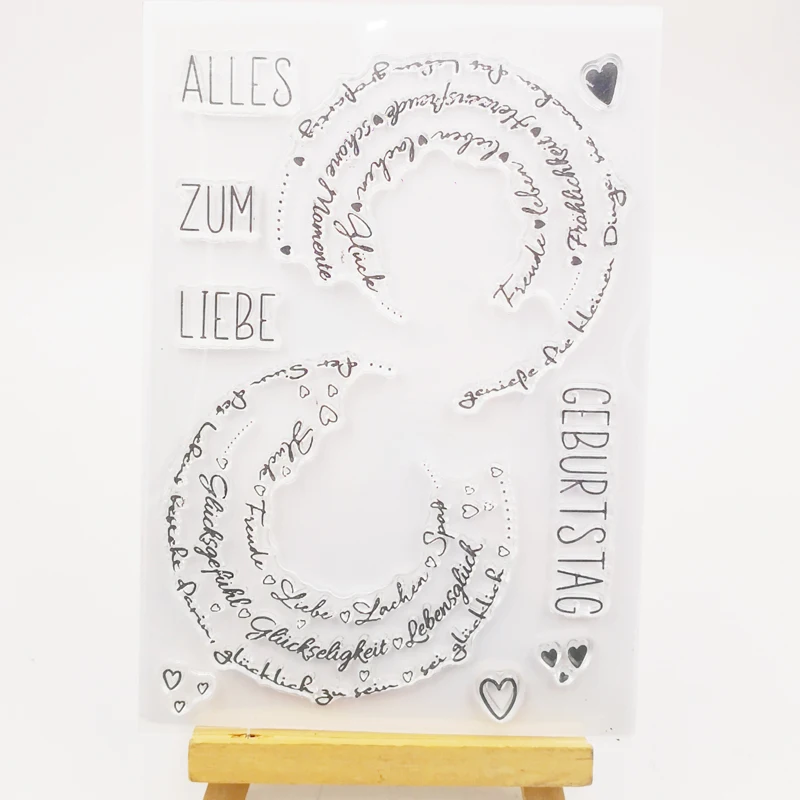 ALLES
ZUM
LIEBE
GEBURTSTAG
genieße die kleinen Dinge, sie machen das Leben großartig
Fröhlichkeit Herzensfreude schöne Momente
Freude lieben lachen Glück
Der Sinn des Lebens besteht darin, glücklich zu sein sei glücklich
Glücksgefühl Glückseligkeit Lebensglück
Glück Freude Liebe Lachen Spaß